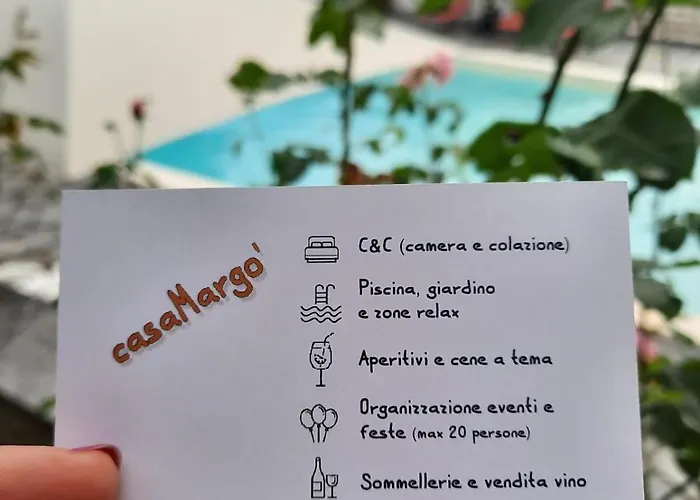 casaMargo'
C&C (camera e colazione)
Piscina, giardino
e zone relax
Aperitivi e cene a tema
Organizzazione eventi e
feste (max 20 persone)
Sommellerie e vendita vino